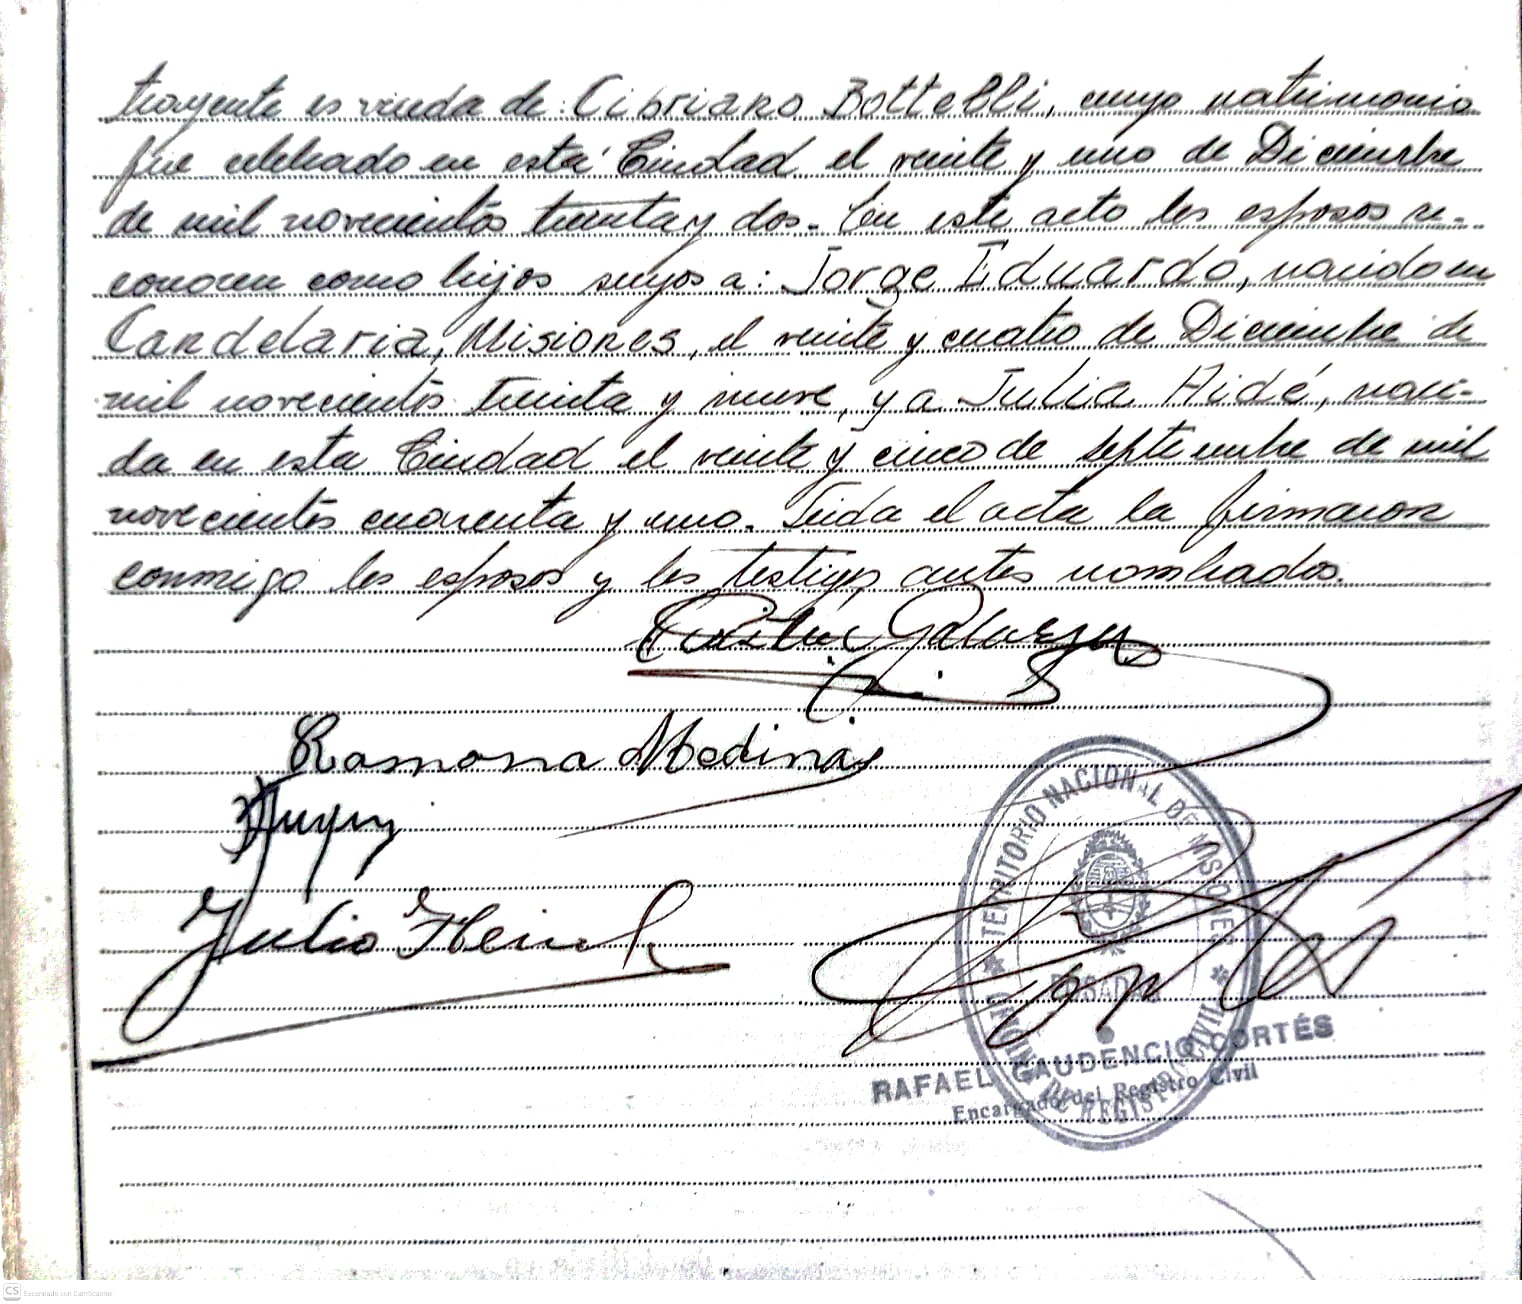 trayente es viuda de Cipriano Bottelli, cuyo matrimonio
fue celebrado en esta Ciudad el veinte y uno de Diciembre
de mil novecientos treinta y dos.- En este acto los esposos re-
conocen como hijos suyos a: Jorge Eduardo, nacido en
Candelaria, Misiones, el veinte y cuatro de Diciembre de
mil novecientos treinta y nueve, y a Julia Aidé, naci-
da en esta Ciudad el veinte y cinco de septiembre de mil
novecientos cuarenta y uno. Leida el acta la firmaron
conmigo los esposos y los testigos antes nombrados.
Galarza
Ramona Medina
Julio
TERRITORIO NACIONAL DE MISIONES
POSADAS
DE REGISTRO CIVIL
RAFAEL GAUDENCIO CORTÉS
Encargado del Registro Civil
CS Escaneado con CamScanner